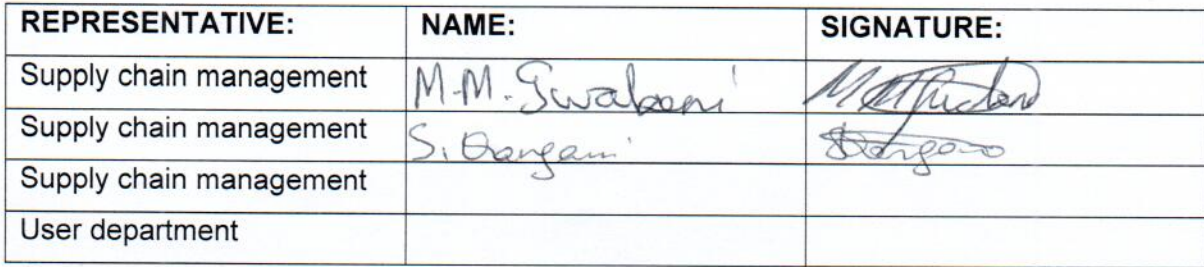 REPRESENTATIVE: NAME: SIGNATURE:
Supply chain management M.M.
Supply chain management S.
Supply chain management
User department